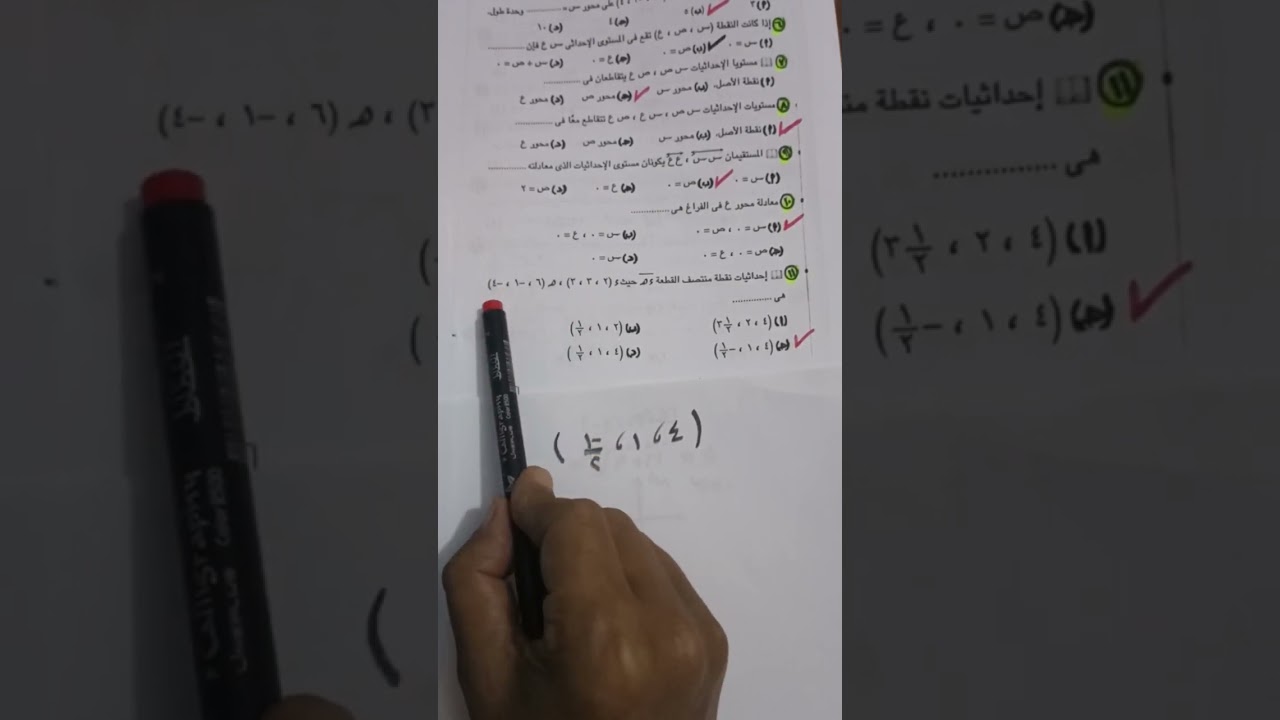 (أ) ٣ (ب) ٥ (ج) ٤ (د) ١٠
على محور س = ............ وحدة طول.
٦ إذا كانت النقطة (س ، ص ، ع) تقع فى المستوى الإحداثى س ع فإن ............
(أ) س = ٠ (ب) ص = ٠ (ج) ع = ٠ (د) س + ص = ٠
٧ مستويا الإحداثيات س ص ، ص ع يتقاطعان فى ............
(أ) نقطة الأصل. (ب) محور س (ج) محور ص (د) محور ع
٨ مستويات الإحداثيات س ص ، س ع ، ص ع تتقاطع معًا فى ............
(أ) نقطة الأصل. (ب) محور س (ج) محور ص (د) محور ع
٩ المستقيمان س س َ ، ع ع َ يكونان مستوى الإحداثيات الذى معادلته ............
(أ) س = ٠ (ب) ص = ٠ (ج) ع = ٠ (د) ص = ٢
١٠ معادلة محور ع فى الفراغ هى ............
(أ) س = ٠ ، ص = ٠ (ب) س = ٠ ، ع = ٠
(ج) ص = ٠ ، ع = ٠ (د) س = ٠
١١ إحداثيات نقطة منتصف القطعة ء هـ حيث ء (٢ ، ٣ ، ٣) ، هـ (٦ ، -١ ، -٤)
هى ............
(أ) (٤ ، ٢ ، ٣ ١/٢) (ب) (٢ ، ١ ، ١/٢)
(ج) (٤ ، ١ ، -١/٢) (د) (٤ ، ١ ، ١/٢)
(٤ ، ١ ، -١/٢)